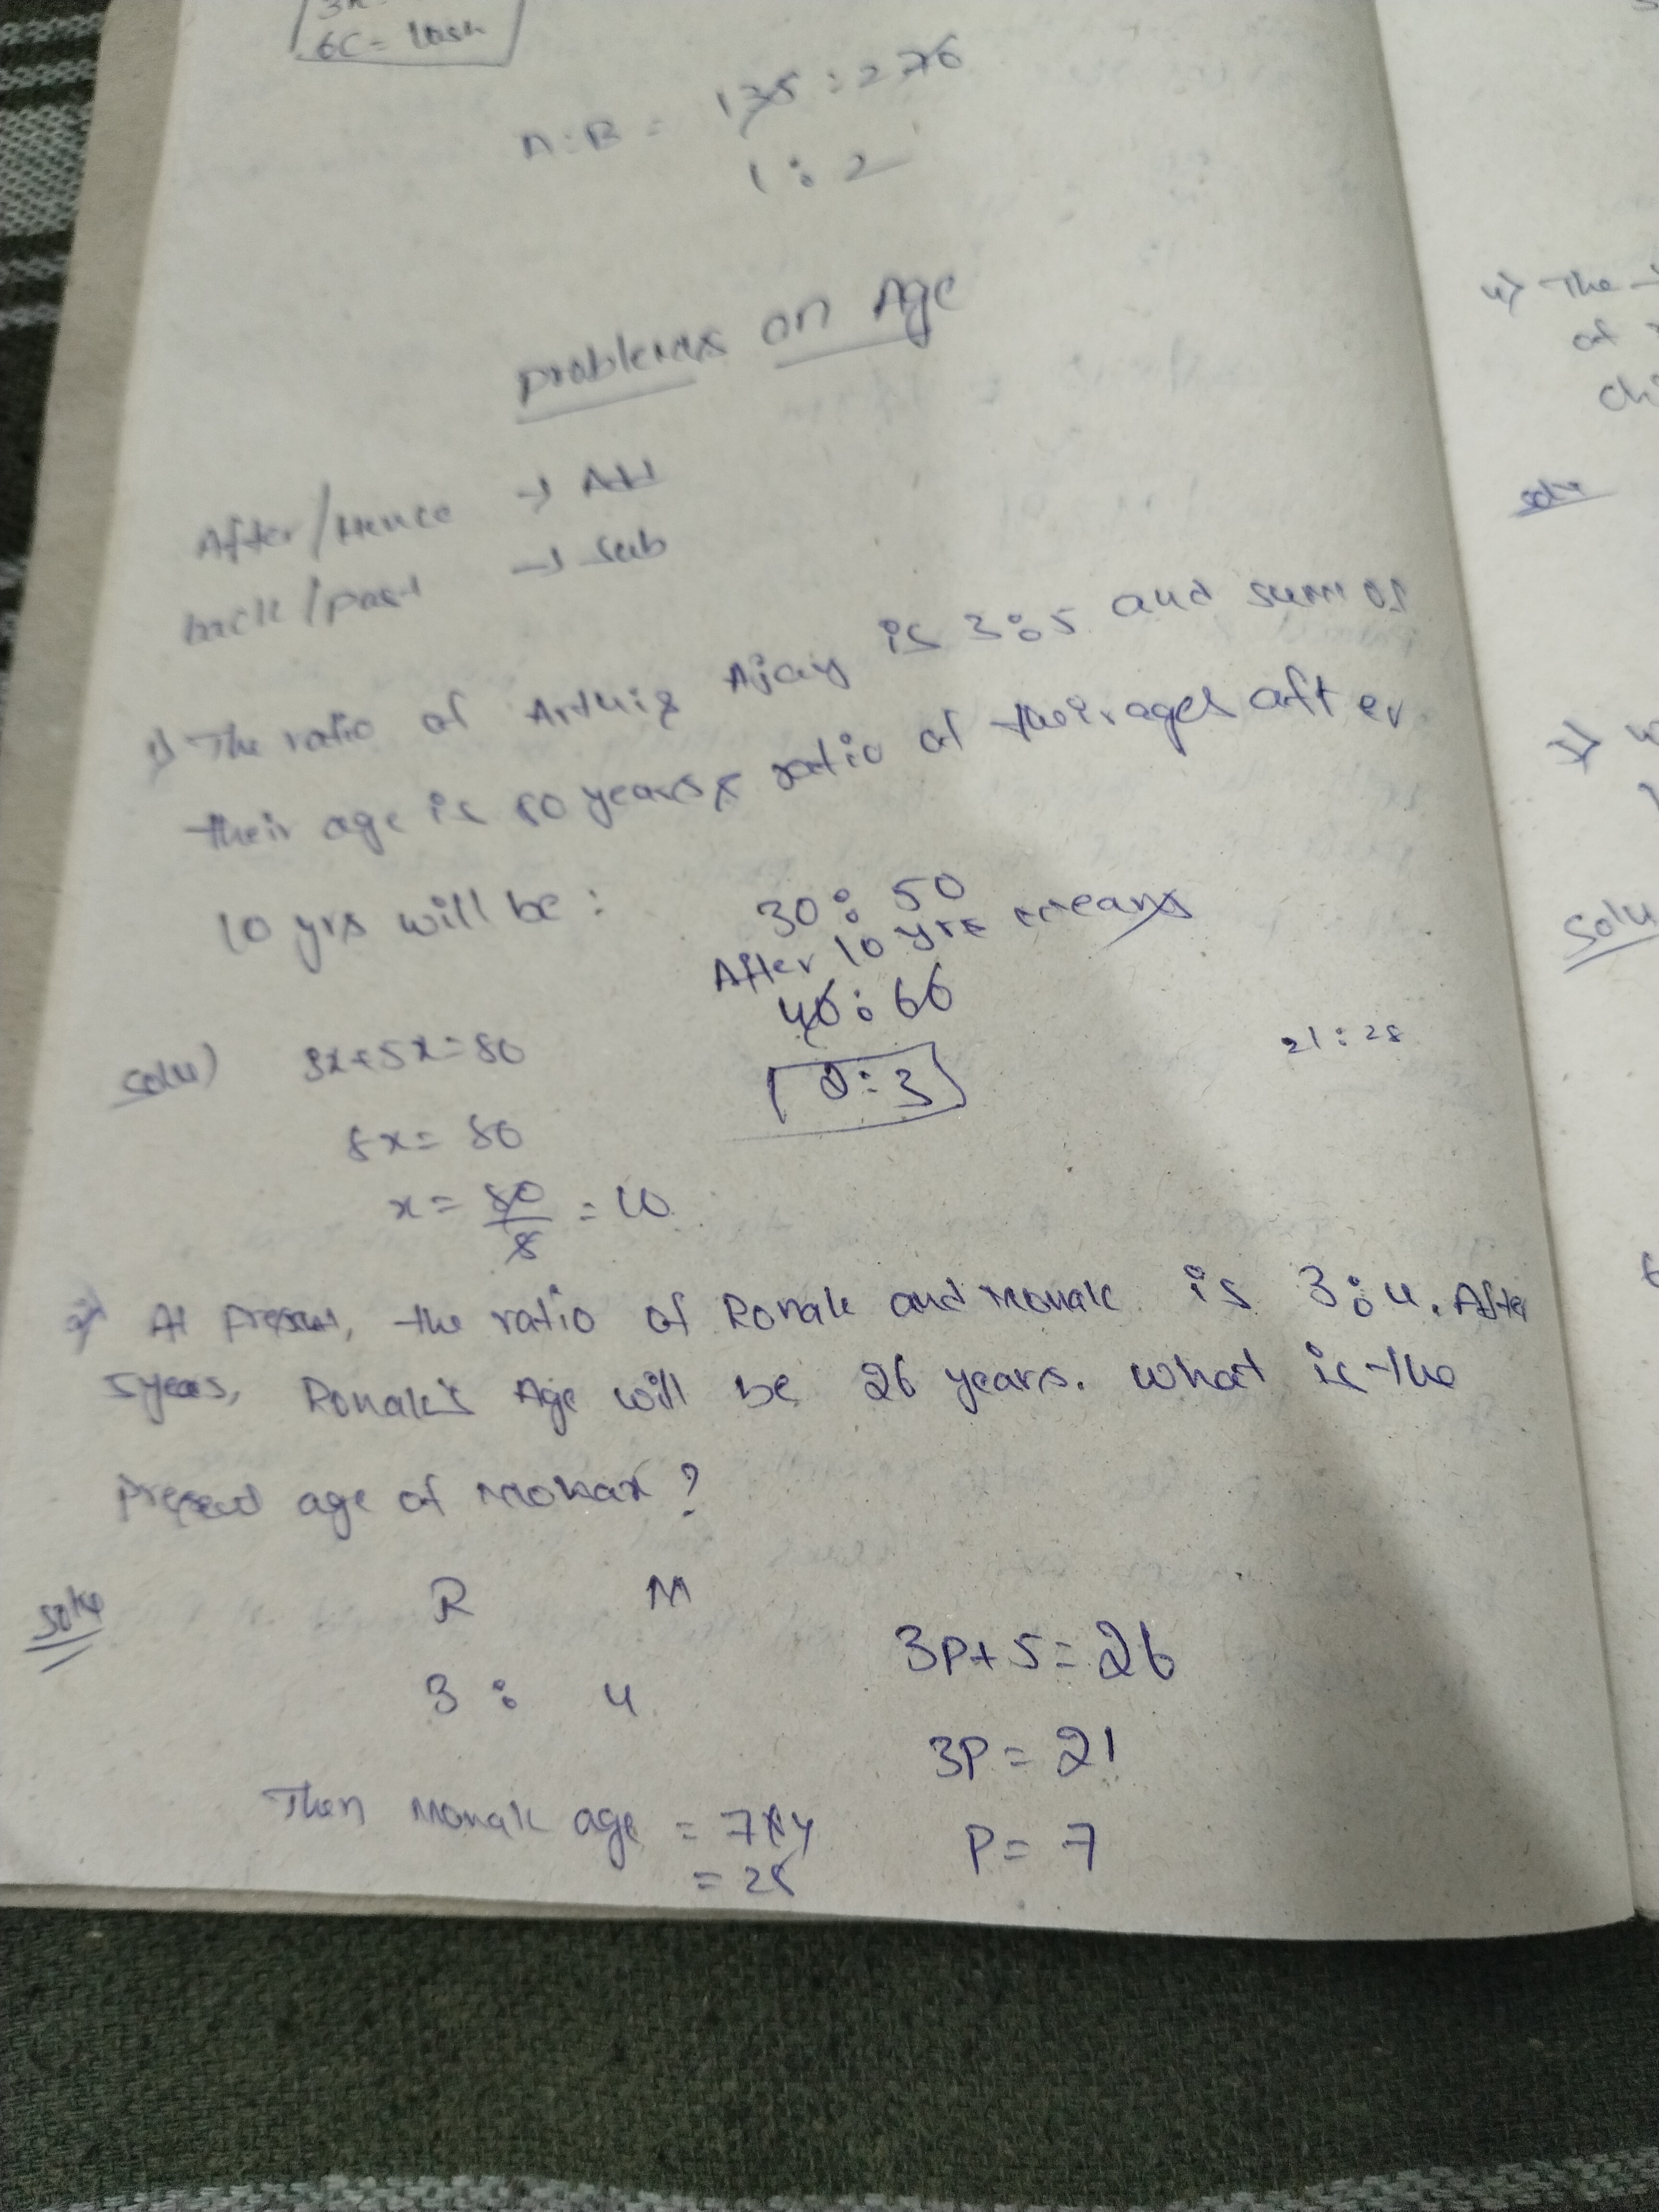 6C=
A:B = 135:270
1:2
Problems on Age
After/Hence → Add
back/past → Sub
1) The ratio of Ajay is 3:5 and sum of
their age is 80 years, ratio of their ages after
10 yrs will be:
30:50
After 10 yrs means
40:60
2:3
Solu) 3x+5x=80
8x=80
x=80/8=10
21:28
2) At present, the ratio of Ronak and Monak is 3:4. After
5years, Ronak's Age will be 26 years. What is the
Present age of Monak?
R M
3 : 4
3P+5=26
3P=21
P=7
Then Monak age = 7x4
=28
4) The
of
chi
solu
Solu